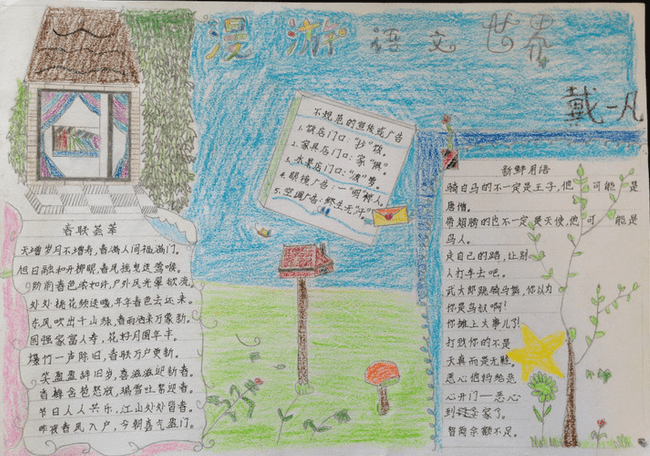 漫游语文世界
戴一凡
不规范的宣传或广告
1.饭店门口:"抄"饭。
2.家具店门口:家"俱"。
3.水果店门口:"波"萝。
4.眼镜广告:一"明"惊人。
5.空调广告:终生无"汗"
春联荟萃
天增岁月人增寿,春满人间福满门。
旭日融和舟柳眼,春风摇曳送莺喉。
阶前春色浓如许,户外风光翠欲流。
处处桃花频送暖,年年春色去还来。
东风吹出千山绿,春雨洒来万象新。
国强家富人寿,花好月圆年丰。
爆竹一声除旧,春联万户更新。
笑盈盈辞旧岁,喜滋滋迎新春。
春梅含苞怒放,瑞雪吐絮迎春。
节日人人共乐,江山处处留春。
昨夜春风入户,今朝喜气盈门。
新鲜用语
骑白马的不一定是王子,他 可能是
唐僧。
带翅膀的也不一定是天使,他 可能是
鸟人。
走自己的路,让别
人打车去吧。
武大郎跳骑马舞,你以为
你是鸟叔啊!
你摊上大事儿了!
打败你的不是
天真而是无鞋。
恶心他妈给恶
心开门一恶心
到家了。
智商余额不足。